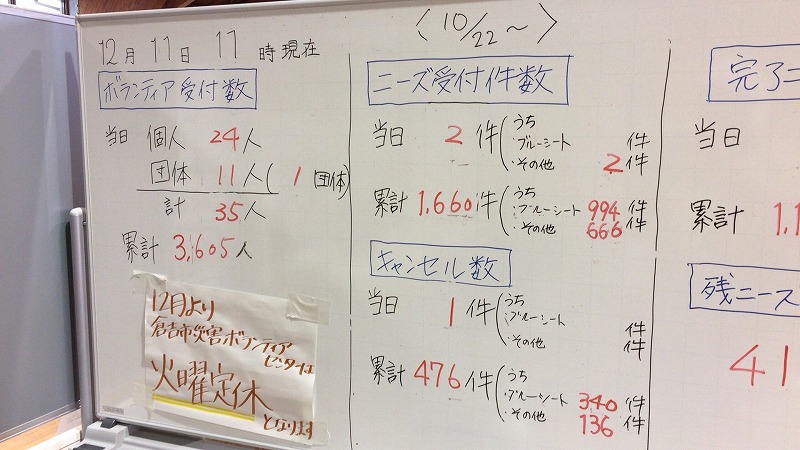 12月11日 17時現在
ボランティア受付数
当日 個人 24人
団体 11人(1団体)
計 35人
累計 3,605人
12月より
倉吉市災害ボランティア
センターは
火曜定休
となります
〈10/22～〉
ニーズ受付件数
当日 2件(うち
・ブルーシート 件
・その他 2件
累計 1,660件(うち
・ブルーシート 994件
・その他 666件
キャンセル数
当日 1件(うち
・ブルーシート 件
・その他 件
累計 476件(うち
・ブルーシート 340件
・その他 136件
完了ニ
当日
累計 1,1
残ニーズ
41